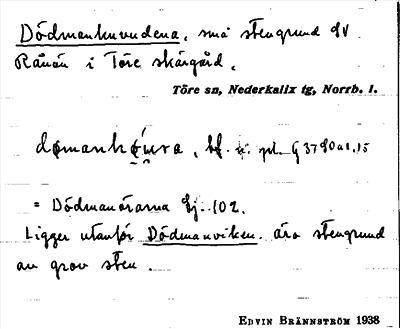 Dödmanhuvudena, små stengrund SV
Rånön i Töre skärgård.
Töre sn, Nederkalix tg, Norrb. l.
dømanhǿura, bf. pl. G 3780a1.15
= Dödmanörarna Gj. 102.
Ligger utanför Dödmanviken. äro stengrund
av grov sten.
EDVIN BRÄNNSTRÖM 1938